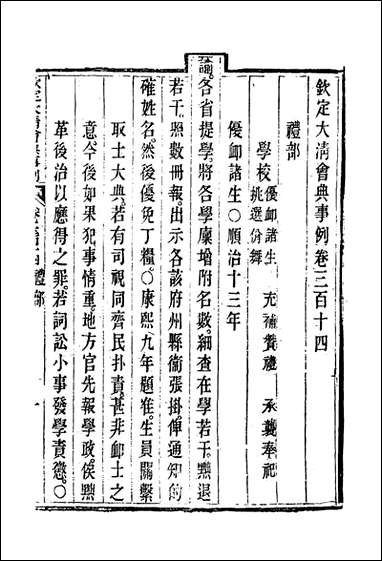 欽定大清會典事例卷三百十四
禮部
學校 優卹諸生 充補贊禮 承襲奉祀
挑選佾舞
優卹諸生○順治十三年
諭各省提學將各學廩增附名數細查在學若干黜退
若干照數冊報出示各該府州縣衞張掛俾通知的
確姓名然後優免丁糧○康熙九年題准生員關繫
取士大典若有司視同齊民扑責甚非卹士之
意今後如果犯事情重地方官先報學政俟黜
革後治以應得之罪若詞訟小事發學責懲○